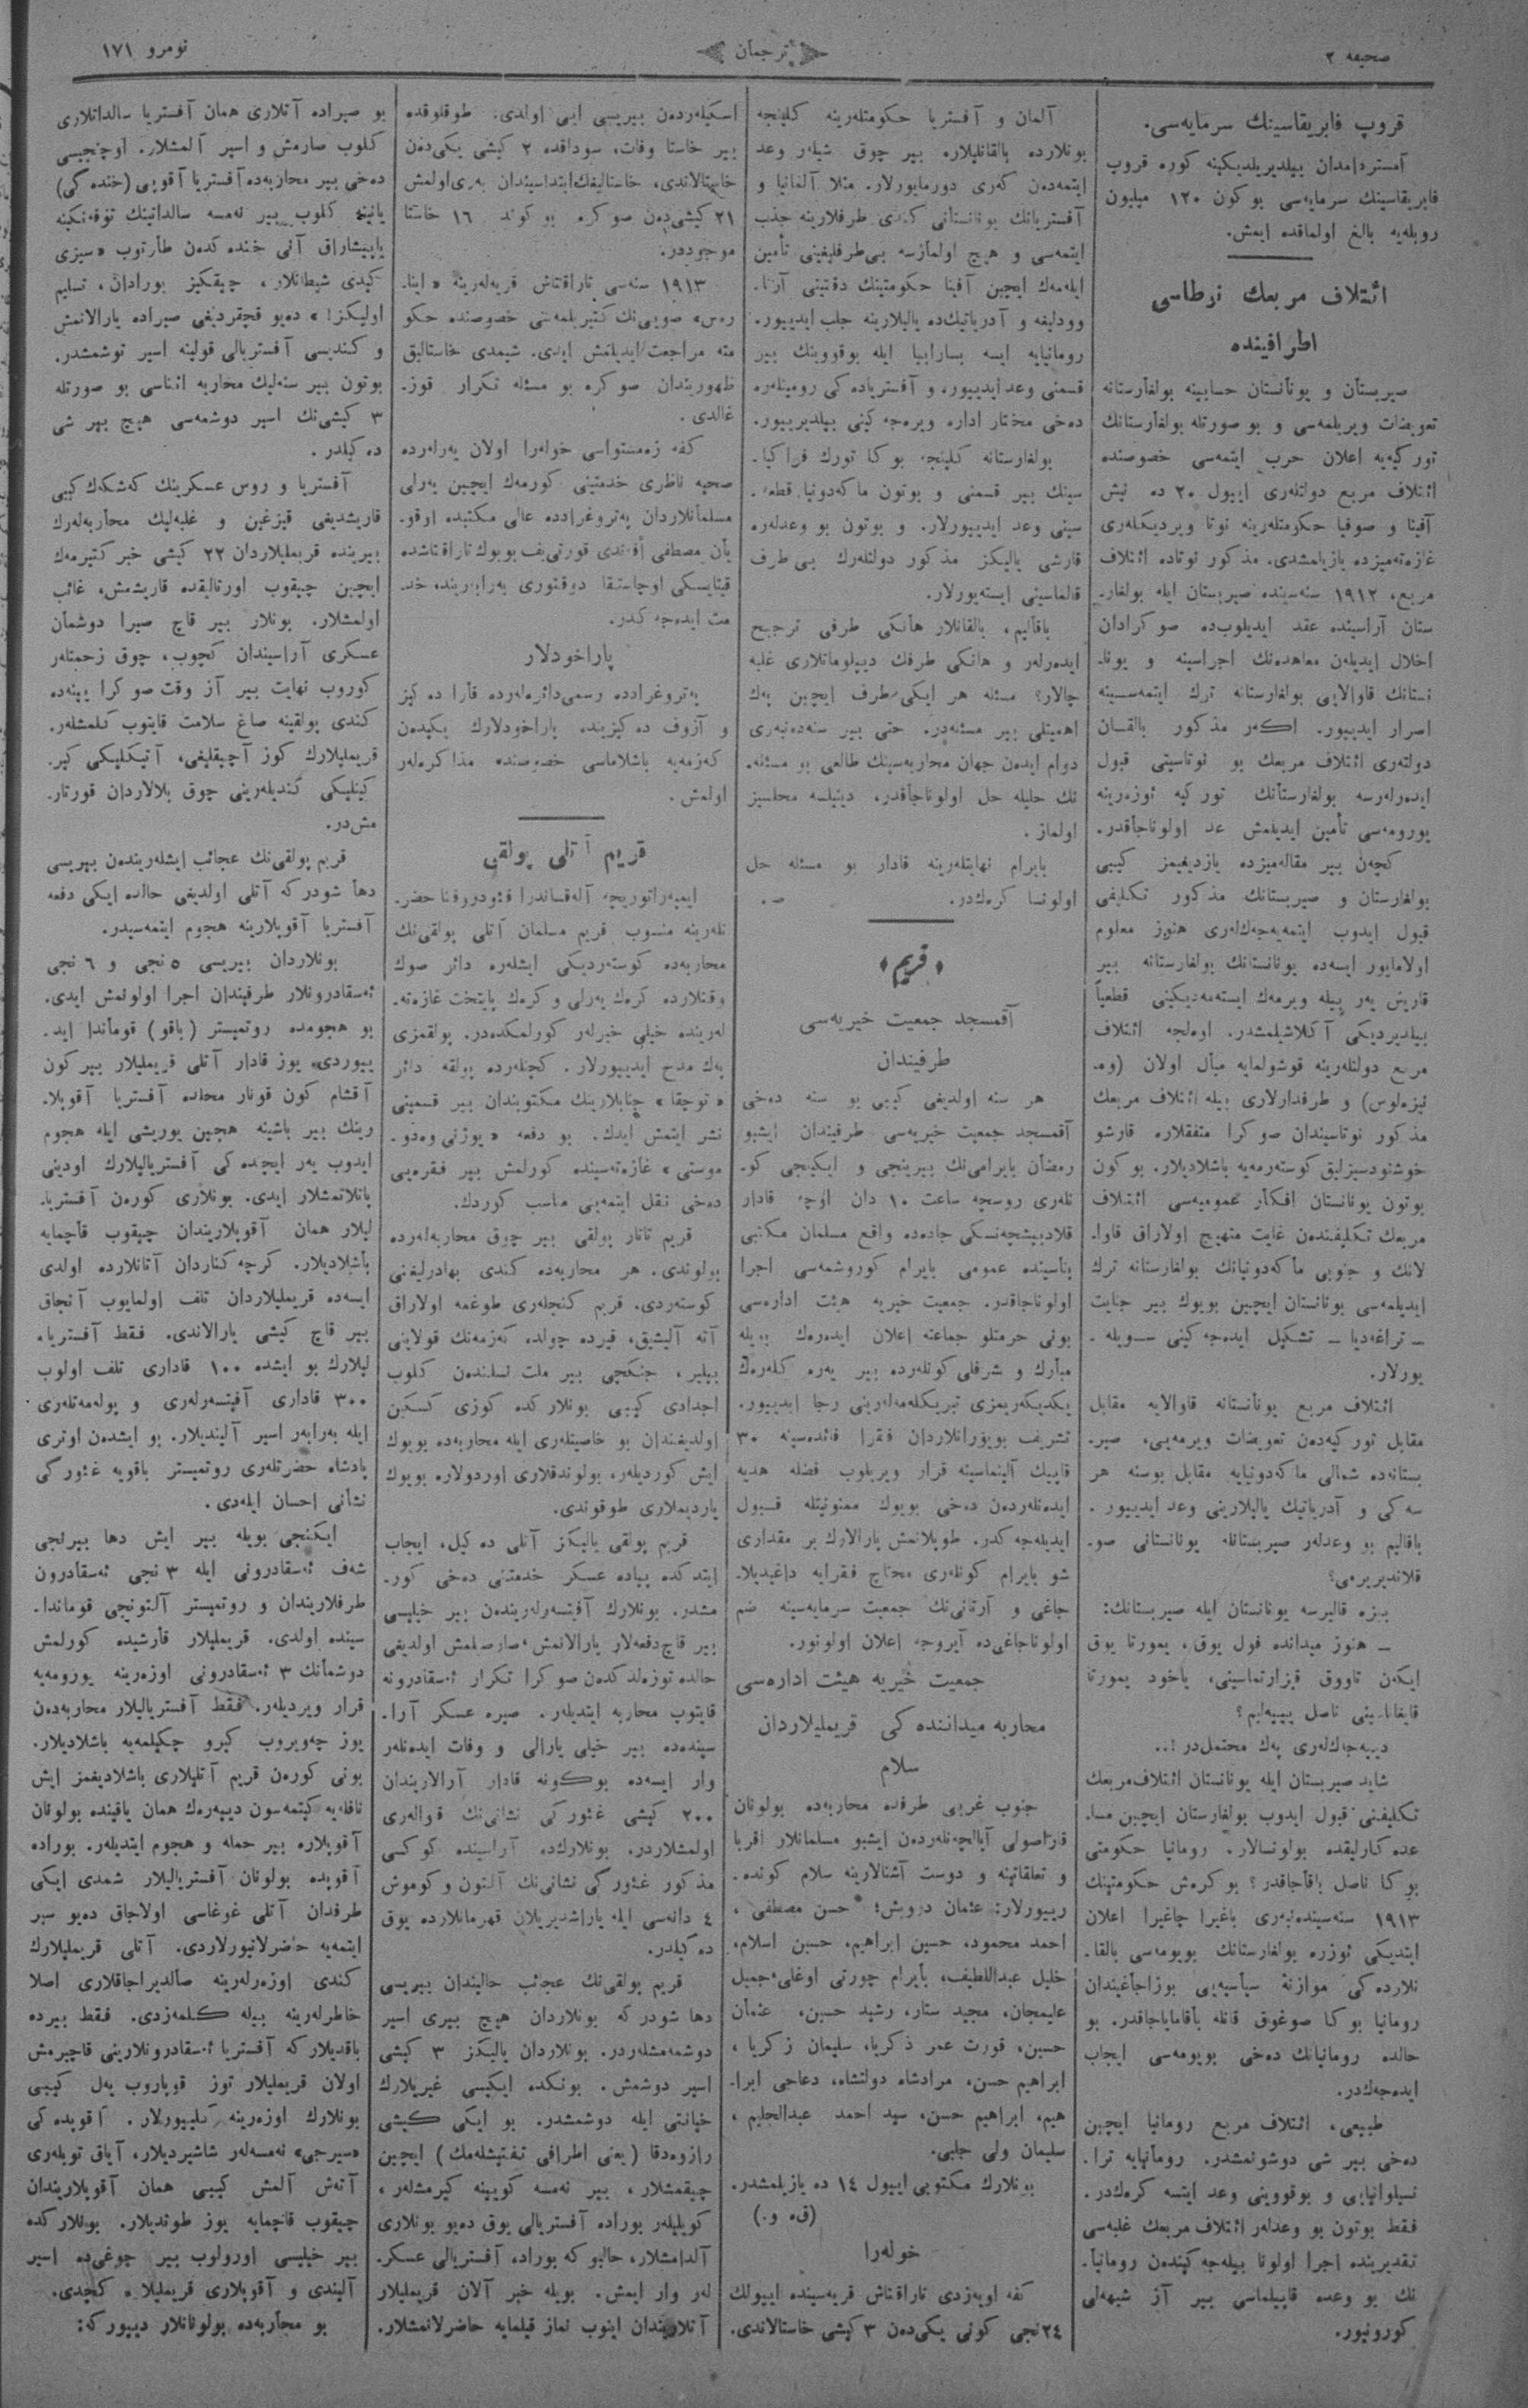 صحیفه ٢
ترجمان
نومرو ١٧١
قروپ فابریقاسینك سرمایه‌سی.
آمستردامدان بیلدیریلدیكینه كوره قروپ
فابریقاسینك سرمایه‌سی بو كون ١٢٠ میلیون
روبله‌یه بالغ اولماقده ایمش.
ائتلاف مربعك نوطاسی
اطرافینده
صیربستان و یونانستان حسابینه بولغارستانه
تعویضات ویریلمه‌سی و بو صورتله بولغارستانك
توركیه‌یه اعلان حرب ایتمه‌سی خصوصنده
ائتلاف مربع دولتله‌ری اییول ٢٠ ده نیش
آفینا و صوفیا حكومتله‌رینه نوتا ویردیكله‌ری
غازه‌ته‌میزده یازیلمشدی. مذكور نوتاده ائتلاف
مربع، ١٩١٢ سنه‌سینده صیربستان ایله بولغار-
ستان آراسینده عقد ایدیلوب‌ده صوكرادان
اخلال ایدیله‌ن معاهده‌نك اجراسینه و یونا-
نستانك قاوالایی بولغارستانه ترك ایتمه‌سینه
اصرار ایدییور. اگه‌ر مذكور بالقان
دولته‌ری ائتلاف مربعك بو نوتاسینی قبول
ایده‌رله‌رسه بولغارستانك توركیه ئوزه‌رینه
یورومه‌سی تأمین ایدیلمش عد اولوناجاقدر.
كچه‌ن بیر مقاله‌میزده یازدیغیمز كیبی
بولغارستان و صیربستانك مذكور تكلیفی
قبول ایدوب ایتمه‌یه‌جه‌كله‌ری هنوز معلوم
اولمایور ایسه‌ده یونانستانك بولغارستانه بیر
قاریش یه‌ر بیله ویرمه‌ك ایسته‌مه‌دیكینی قطعیاً
بیلدیردیكی آكلاشیلمشدر. اوه‌لجه ائتلاف
مربع دولتله‌رینه قوشولمایه میال اولان (وه‌-
نیزه‌لوس) و طرفدارلاری بیله ائتلاف مربعك
مذكور نوتاسیندان صوكرا متفقلاره قارشو
خوشنودسیزلیق كوسته‌رمه‌یه باشلادیلار. بو كون
بوتون یونانستان افكار عمومیه‌سی ائتلاف
مربعك تكلیفندن غایت متهیج اولاراق قاوا-
لانك و جنوبی ماكه‌دونیانك بولغارستانه ترك
ایدیلمه‌سی یونانستان ایچین بویوك بیر جنایت
ـ تراغه‌دیا ـ تشكیل ایده‌جه‌كینی سویله -
یورلار.
ائتلاف مربع یونانستانه قاوالایه مقابل
مقابل توركیه‌دن تعویضات ویرمه‌یی، صیر-
بستانه‌ده شمالی ماكه‌دونیایه مقابل بوسنه هر
سه‌كی و آدریاتیك یالیلارینی وعد ایدییور.
باقالیم بو وعدلر صیربستانله یونانستانی صو-
قلاندیریرمی؟
بیزه قالیرسه یونانستان ایله صیربستانك:
ـ هنوز میدانده فول یوق، یمورتا یوق
ایكه‌ن تاووق قیزارتماسینی، یاخود یمورتا
ناصل یییه‌لیم؟
دییه‌جه‌كله‌ری په‌ك محتملدر!..
شاید صیربستان ایله یونانستان ائتلاف مربعك
تكلیفنی قبول ایدوب بولغارستان ایچین مسا-
عده‌كارلیقده بولونسالار. رومانیا حكومتی
بو كا ناصل باقاجاقدر؟ بو كره‌ش حكومتینك
١٩١٣ سنه‌سینده‌نبه‌ری باغیرا چاغیرا اعلان
ایتدیكی ئوزره بولغارستانك بویومه‌سی بالقا-
نلارده‌كی موازنهٔ سیاسیه‌یی بوزاجاغیندان
رومانیا بو كا صوغوق قانله باقامایاجاقدر. بو
حالده رومانیانك ده‌خی بویومه‌سی ایجاب
ایده‌جه‌كدر.
طبیعی، ائتلاف مربع رومانیا ایچین
ده‌خی بیر شی دوشونمشدر. رومانیایه ترا-
نسیلوانیایی و بوقووینی وعد ایتسه كره‌كدر.
فقط بوتون بو وعدله‌ر ائتلاف مربعك غلبه‌سی
تقدیرینده اجرا اولونا بیله‌جه‌كیندن رومانیا-
نك بو وعده قاپیلماسی بیر آز شبهه‌لی
كورونیور.
آلمان و آفستریا حكومتله‌رینه كلینجه
بونلارده بالقانلیلاره بیر چوق شیلر وعد
ایتمه‌دن كه‌ری دورمایورلار. مثلا آلمانیا و
آفستریانك یونانستانی كندی طرفلارینه جذب
ایتمه‌سی و هیچ اولمازسه بی‌طرفلیغینی تأمین
ایله‌مه‌ك ایچین آفینا حكومتینك دقتینی آرنا-
وودلیغه و آدریاتیك‌ده یالیلارینه جلب ایدییور.
رومانیایه ایسه بسارابیا ایله بوقووینك بیر
قسمنی وعد ایدییور، و آفستریاده‌كی رومینله‌ره
ده‌خی مختار اداره ویره‌جه‌كینی بیلدیرییور.
بولغارستانه كلینجه بو كا تورك فراكیا-
سینك بیر قسمنی و بوتون ماكه‌دونیا قطعه-
سینی وعد ایدییورلار. و بوتون بو وعدله‌ره
قارشی یالیكز مذكور دولتله‌رك بی‌طرف
قالماسینی ایسته‌یورلار.
باقالیم، بالقانلار هانكی طرفی ترجیح
ایده‌رله‌ر و هانكی طرفك دیپلوماتلاری غلبه
چالار؟ مسئله هر ایكی طرف ایچین په‌ك
اهمیتلی بیر مسئله‌در. حتی بیر سنه‌ده‌نبه‌ری
دوام ایده‌ن جهان محاربه‌سینك طالعی بو مسئله-
نك حلیله حل اولوناجاقدر، دینیلسه محلسیز
اولماز.
بایرام نهایتله‌رینه قادار بو مسئله حل
اولونسا كره‌كدر. ص.
﴿قریم﴾
آقمسجد جمعیت خیریه‌سی
طرفیندان
هر سنه اولدیغی كیبی بو سنه ده‌خی
آقمسجد جمعیت خیریه‌سی طرفیندان ایشبو
رمضان بایرامی‌نك بیرینجی و ایكینجی كو-
نله‌ری روسچه ساعت ١٠ دان اوچه قادار
جاده‌ده واقع مسلمان مكتبی
بناسینده عمومی بایرام كوروشمه‌سی اجرا
اولوناجاقدر. جمعیت خیریه هیئت اداره‌سی
بونی حرمتلو جماعته اعلان ایده‌ره‌ك بویله
مبارك و شرفلی كونله‌رده بیر یه‌ره كله‌ره‌ك
یكدیكه‌ریمزی تبریكله‌مه‌له‌رینی رجا ایدییور.
تشریف بویورانلاردان فقرا فائده‌سینه ٣٠
قاپیك آلینماسینه قرار ویریلوب فضله هدیه
ایده‌نله‌ردن ده‌خی بویوك ممنونیتله قبول
ایدیله‌جه‌كدر. طوپلانمش پارالارك بر مقداری
شو بایرام كونله‌ری محتاج فقرایه داغیدیلا-
جاغی و آرتانی‌نك جمعیت سرمایه‌سینه ضم
اولوناجاغی‌ده آیروجه اعلان اولونور.
جمعیت خیریه هیئت اداره‌سی
محاربه میداننده‌كی قریملیلاردان
سلام
جنوب غربی طرفده محاربه‌ده بولونان
قاراصولی ایشبو مسلمانلار اقربا
و تعلقاتینه و دوست آشنالارینه سلام كونده-
رییورلار: عثمان درویش؛ حسن مصطفی،
احمد محمود، حسین ابراهیم، حسین اسلام،
خلیل عبداللطیف، بایرام چورتی اوغلی جمیل
علیمجان، مجید ستار، رشید حسین، عثمان
حسین، قورت عمر ذكریا، سلیمان زكریا،
ابراهیم حسن، مرادشاه دولتشاه، دعاجی ابرا-
هیم، ابراهیم حسن، سید احمد عبدالحلیم،
سلیمان ولی چلبی.
بونلارك مكتوبی اییول ١٤ ده یازیلمشدر.
(ق. و.)
خوله‌را
كفه اویه‌زدی تاراقتاش قریه‌سینده اییولك
٢٤نجی كونی یكی‌ده‌ن ٣ كیشی خاستالاندی.
اسكیله‌رده‌ن بیریسی ایی اولدی. طوقلوقده
بیر خاستا وفات، سوداقده ٢ كیشی یكی‌ده‌ن
خاستالاندی، خاستالیغك ابتداسیندان به‌ری اولمش
٢١ كیشی‌ده‌ن صوكره بو كونده ١٦ خاستا
موجوددر.
١٩١٣ سنه‌سی تاراقتاش قریه‌له‌رینه «اینا-
ره‌س» صویی‌نك كتیریلمه‌سی خصوصنده حكو
مته مراجعت ایدیلمش ایدی. شیمدی خاستالیق
ظهوریندان صوكره بو مسئله تكرار قوز-
غالدی.
كفه زه‌مستواسی خوله‌را اولان یه‌رله‌رده
صحیه ناظری خدمتینی كورمه‌ك ایچین یه‌رلی
مسلمانلاردان په‌تروغرادده عالی مكتبده اوقو-
یان مصطفی افندی قورتی‌یف بویوك تاراقتاشده
دوقتوری به‌رابه‌رینده خد-
مت ایده‌جه‌كدر.
پاراخودلار
په‌تروغرادده رسمی دائره‌له‌رده قارا ده‌كیز
و آزوف ده‌كیزینده پاراخودلارك یكیده‌ن
كه‌زمه‌یه باشلاماسی خصوصنده مذاكره‌له‌ر
اولمش.
قریم آتلی پولقی
ایمپه‌راتوریچه آله‌قساندرا فئودوروفنا حضر-
تله‌رینه منسوب قریم مسلمان آتلی پولقی‌نك
محاربه‌ده كوسته‌ردیكی ایشله‌ره دائر صوك
وقتلارده كره‌ك یه‌رلی و كره‌ك پایتخت غازه‌ته-
له‌رینده خیلی خبرله‌ر كورلمكده‌در. پولقمزی
په‌ك مدح ایدییورلار. كچنله‌رده پولقه دائر
«توچقا» جنابلارینك مكتوبندان بیر قسمینی
نشر ایتمش ایدك. بو دفعه «یوژنی وه‌دو-
موستی» غازه‌ته‌سینده كورلمش بیر فقره‌یی
ده‌خی نقل ایتمه‌یی مناسب كوردك.
قریم تاتار پولقی بیر چوق محاربه‌له‌رده
بولوندی. هر محاربه‌ده كندی بهادرلیغنی
كوسته‌ردی. قریم كنجله‌ری طوغمه اولاراق
آته آلیشیق، قیرده چولده كه‌زمه‌نك قولایینی
بیلیر، جنكچی بیر ملت نسلندن كلوب
اجدادی كیبی بونلاركده كوزی كسكین
اولدیغندان بو خاصیتله‌ری ایله محاربه‌ده بویوك
ایش كوردیله‌ر، بولوندقلاری اوردولاره بویوك
یاردیملاری طوقوندی.
قریم پولقی یالیكز آتلی ده‌كیل، ایجاب
ایتدكده پیاده عسكر خدمتنی ده‌خی كور-
مشدر. بونلارك آفیتسه‌رله‌رینده‌ن بیر خیلیسی
بیر قاچ دفعه‌لار یارالانمش، اولدیغی
حالده توزه‌لدكدن صوكرا تكرار ئه‌سقادرونه
قایتوب محاربه ایتدیله‌ر. صیره عسكر آرا-
سینده‌ده بیر خیلی یارالی و وفات ایده‌نله‌ر
وار ایسه‌ده بو كونه قادار آرالاریندان
٢٠٠ كیشی غئوركی نشانی‌نك قواله‌ری
اولمشلاردر. بونلارك‌ده آراسینده كوكسی
مذكور غئوركی نشانی‌نك آلتون و كوموش
٤ دانه‌سی ایله یاراشدیریلان قهرمانلارده یوق
ده‌كیلدر.
قریم پولقی‌نك عجائب حالیندان بیریسی
دها شودر كه بونلاردان هیچ بیری اسیر
دوشمه‌مشله‌ردر. بونلاردان یالیكز ٣ كیشی
اسیر دوشمش. بونكده ایكیسی غیریلارك
خیانتی ایله دوشمشدر. بو ایكی كیشی
رازوه‌دقا (یعنی اطرافی تفتیشله‌مك) ایچین
چیقمشلار، بیر نه‌مسه كویینه كیرمشله‌ر،
كویلیله‌ر بوراده آفستریالی یوق ده‌یو بونلاری
آلدامشلار، حالبو كه بوراده آفستریالی عسكر-
له‌ر وار ایمش. بویله خبر آلان قریملیلار
آتلاریندان اینوب نماز قیلمایه حاضرلانمشلار.
بو صیراده آتلاری همان آفستریا سالداتلاری
كلوب صارمش و اسیر آلمشلار. اوچنجیسی
ده‌خی بیر محاربه‌ده آفستریا آقوپی (خنده‌كی)
یانینه كلوب بیر نه‌مسه سالداتینك توفه‌نكینه
یاپیشاراق آنی خنده‌كدن طارتوب «سیزی
كیدی شیطانلار، چیقكیز بورادان، تسلیم
اولیكز!» ده‌یو قچقردیغی صیراده یارالانمش
و كندیسی آفستریالی قولینه اسیر توشمشدر.
بوتون بیر سنه‌لیك محاربه اثناسی بو صورتله
٣ كیشی‌نك اسیر دوشمه‌سی هیچ بیر شی
ده‌كیلدر.
آفستریا و روس عسكرینك كه‌شكه‌ك كیبی
قاریشدیغی قیزغین و غلبه‌لیك محاربه‌له‌رك
بیرینده قریملیلاردان ٢٢ كیشی خبر كتیرمه‌ك
ایچین چیقوب اورتالیقده قاریشمش، غائب
اولمشلار. بونلار بیر قاچ صیرا دوشمان
عسكری آراسیندان كچوب، چوق زحمتله‌ر
كوروب نهایت بیر آز وقت صوكرا یینه‌ده
كندی پولقینه صاغ سلامت قایتوب كلمشله‌ر.
قریملیلارك كوز آچیقلیغی، آتیكلیكی كیر-
كینلیكی كندیله‌رینی چوق بلالاردان قورتار-
مش‌در.
قریم پولقی‌نك عجائب ایشله‌رینده‌ن بیریسی
دها شودر كه آتلی اولدیغی حالده ایكی دفعه
آفستریا آقوپلارینه هجوم ایتمه‌سیدر.
بونلاردان بیریسی ٥نجی و ٦نجی
ئه‌سقادرونلار طرفیندان اجرا اولونمش ایدی.
بو هجومده روتمیستر (باقو) قوماندا اید-
ییوردی. یوز قادار آتلی قریملیلار بیر كون
آقشام كون قونار محلده آفستریا آقوپلا-
رینك بیر باشینه هجین یوریشی ایله هجوم
ایدوب یه‌ر ایچنده‌كی آفستریالیلارك اودینی
پاتلاتمشلار ایدی. بونلاری كوره‌ن آفستریا-
لیلار همان آقوپلاریندان چیقوب قاچمایه
باشلادیلار. كرچه كناردان آتانلارده اولدی
ایسه‌ده قریملیلاردان تلف اولمایوب آنجاق
بیر قاچ كیشی یارالاندی. فقط آفستریا-
لیلارك بو ایشده ١٠٠ قاداری تلف اولوب
٣٠٠ قاداری آفیتسه‌رله‌ری و پوله‌مه‌تله‌ری
ایله به‌رابه‌ر اسیر آلیندیلار. بو ایشده‌ن اوتری
پادشاه حضرتله‌ری روتمیستر باقویه غئوركی
نشانی احسان ایله‌دی.
ایكنجی بویله بیر ایش دها بیرنجی
شه‌ف ئه‌سقادرونی ایله ٣ نجی ئه‌سقادرون
طرفلاریندان و روتمیستر آلتونجی قوماندا-
سینده اولدی. قریملیلار قارشیده كورلمش
دوشمانك ٣ ئه‌سقادرونی اوزه‌رینه یورومه‌یه
قرار ویردیله‌ر. فقط آفستریالیلار محاربه‌ده‌ن
یوز چه‌ویروب كیرو چكیلمه‌یه باشلادیلار.
بونی كوره‌ن قریم آتلیلاری باشلادیغمز ایش
نافله‌یه كیتمه‌سون دییه‌ره‌ك همان یاقینده بولونان
آقوپلاره بیر حمله و هجوم ایتدیله‌ر. بوراده
آقوپده بولونان آفستریالیلار شمدی ایكی
طرفدان آتلی غوغاسی اولاجاق ده‌یو سیر
ایتمه‌یه حاضرلانیورلاردی. آتلی قریملیلارك
كندی اوزه‌رله‌رینه صالدیراجاقلاری اصلا
خاطرله‌رینه بیله كلمه‌زدی. فقط بیرده
باقدیلار كه آفستریا ئه‌سقادرونلارینی قاچیرمش
اولان قریملیلار توز قوپاروب یه‌ل كیبی
بونلارك اوزه‌رینه كلییورلار. آقوپده‌كی
«سیرجی» نه‌مسه‌له‌ر شاشیردیلار، آیاق توپله‌ری
آته‌ش آلمش كیبی همان آقوپلاریندان
چیقوب قاچمایه یوز طوتدیلار. بونلاركده
بیر خیلیسی اورولوب بیر چوغی‌ده اسیر
آلیندی و آقوپلاری قریملیلاره كچدی.
بو محاربه‌ده بولونانلار دییور كه: